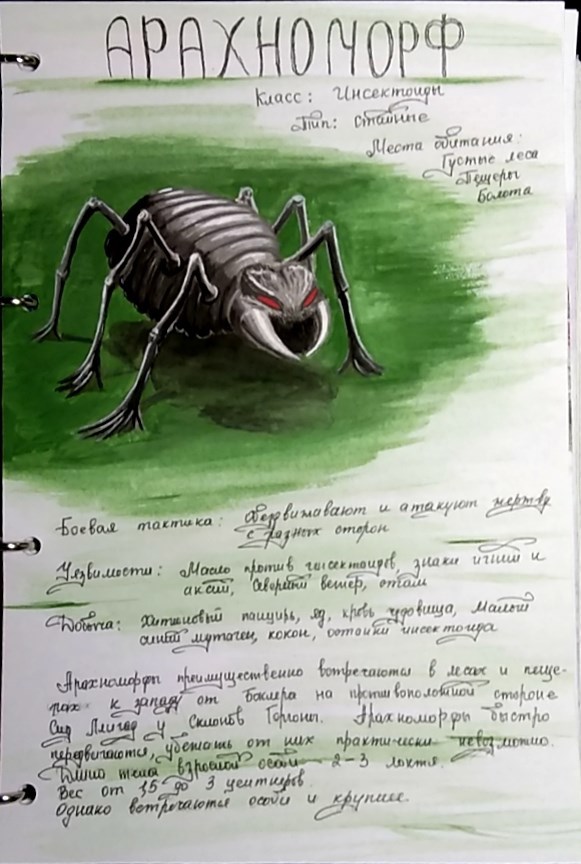 АРАХНОМОРФ
Класс: Инсектоиды
Тип: стайные
Места обитания:
Густые леса
Пещеры
Болота
Боевая тактика: обездвиживают и атакуют жертву
с разных сторон
Уязвимости: Масло против инсектоидов, знаки игни и
аксий, северный ветер, отам
Добыча: Хитиновый панцирь, яд, кровь чудовища, Малый
синий мутаген, кокон, останки инсектоида
Арахноморфы преимущественно встречаются в лесах и пеще-
рах к западу от Боклера на противоположной стороне
Сид Ллигад у Склонов Горгоны. Арахноморфы быстро
передвигаются, убежать от них практически невозможно.
Длина тела взрослой особи - 2-3 локтя.
Вес от 1,5 до 3 центнеров.
Однако встречаются особи и крупнее.